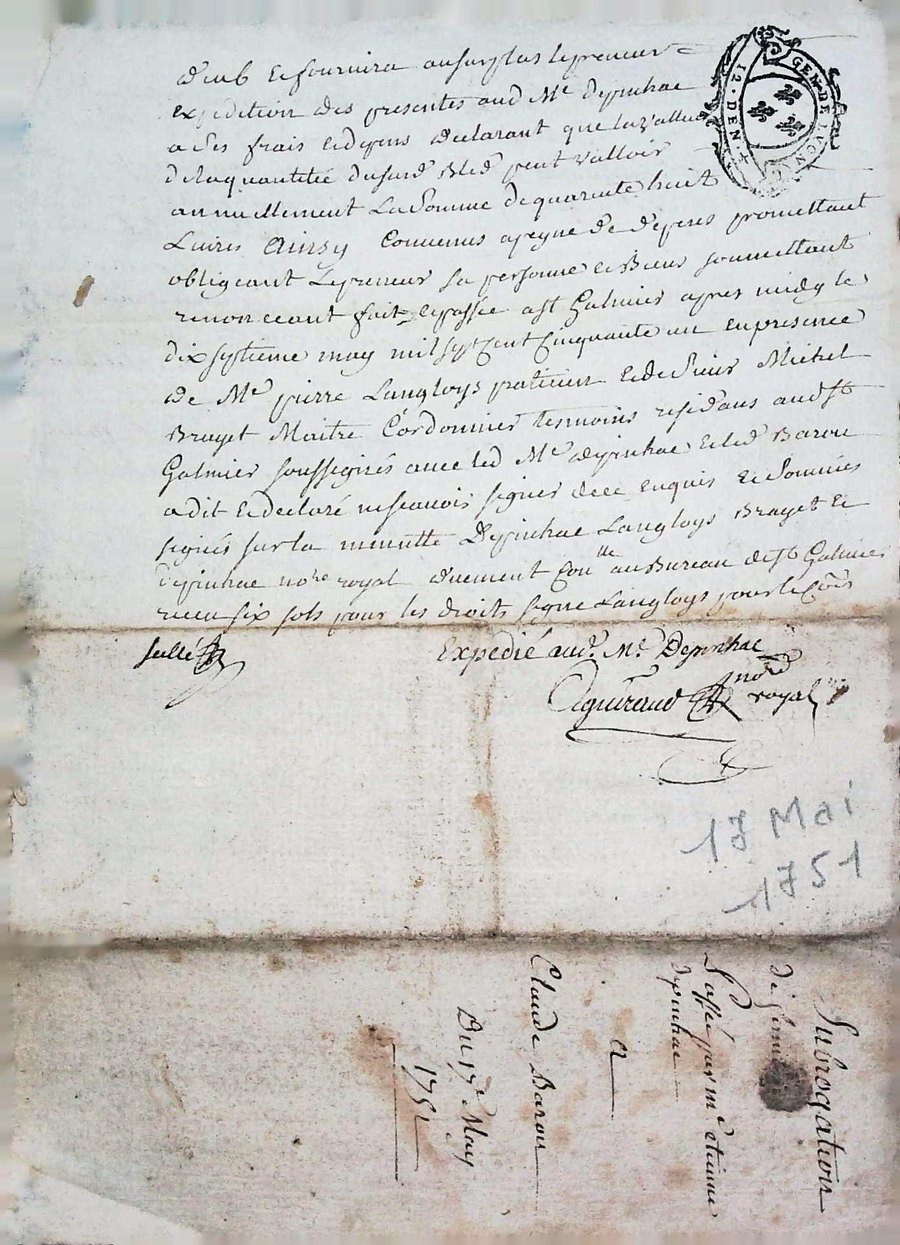 GEN. DE LYON
12. DEN.
et fournira au surplus le preneur
expedition des presentes aud Me Depinhac
a ses frais et depens declarant que la valleur
de la quantitée dususd Bled peut valloir
annuellement La Somme de quarente huit
Livres Ainsy Convenus a peyne de depens promettant
obligeant Le preneur sa personne et Biens soumettant
renonceant fait et passée a St Galmier apres midy le
dix septieme may mil sept Cent Cinquante un en presence
de Me pierre Langloys praticien et de Sieur Michel
Brayet Maitre Cordonnier tesmoins residans aud St
Galmier soussignés avec led Me depinhac et led Barou
a dit et declaré ne scavoir signer de ce enquis et Sommés
signés sur la minutte Depinhac Langloys Brayet et
depinhac nore royal duement Conlle au Bureau de St Galmier
receu six sols pour les droits signe Langloys pour le Cõis
scellé
Expedié aud. Me. Depinhac
nore
royal
17 Mai
1751
Subrogation
de
Passée par me etienne
depinhac
a
Claude Barou
Du 17e May
1751